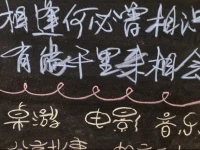 相逢何必曾相识
有缘千里来相会
桌游 电影 音乐